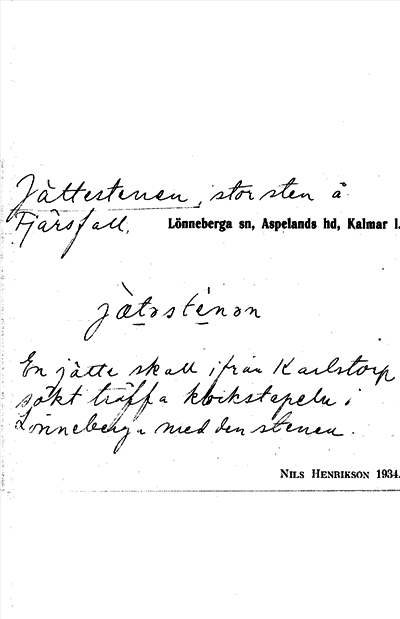 Jättestenen, stor sten å
Fjärsfall, Lönneberga sn, Aspelands hd, Kalmar l.
jætɔstenɔn
En jätte skall ifrån Karlstorp
sökt träffa klockstapeln i
Lönneberga med den stenen.
NILS HENRIKSON 1934.